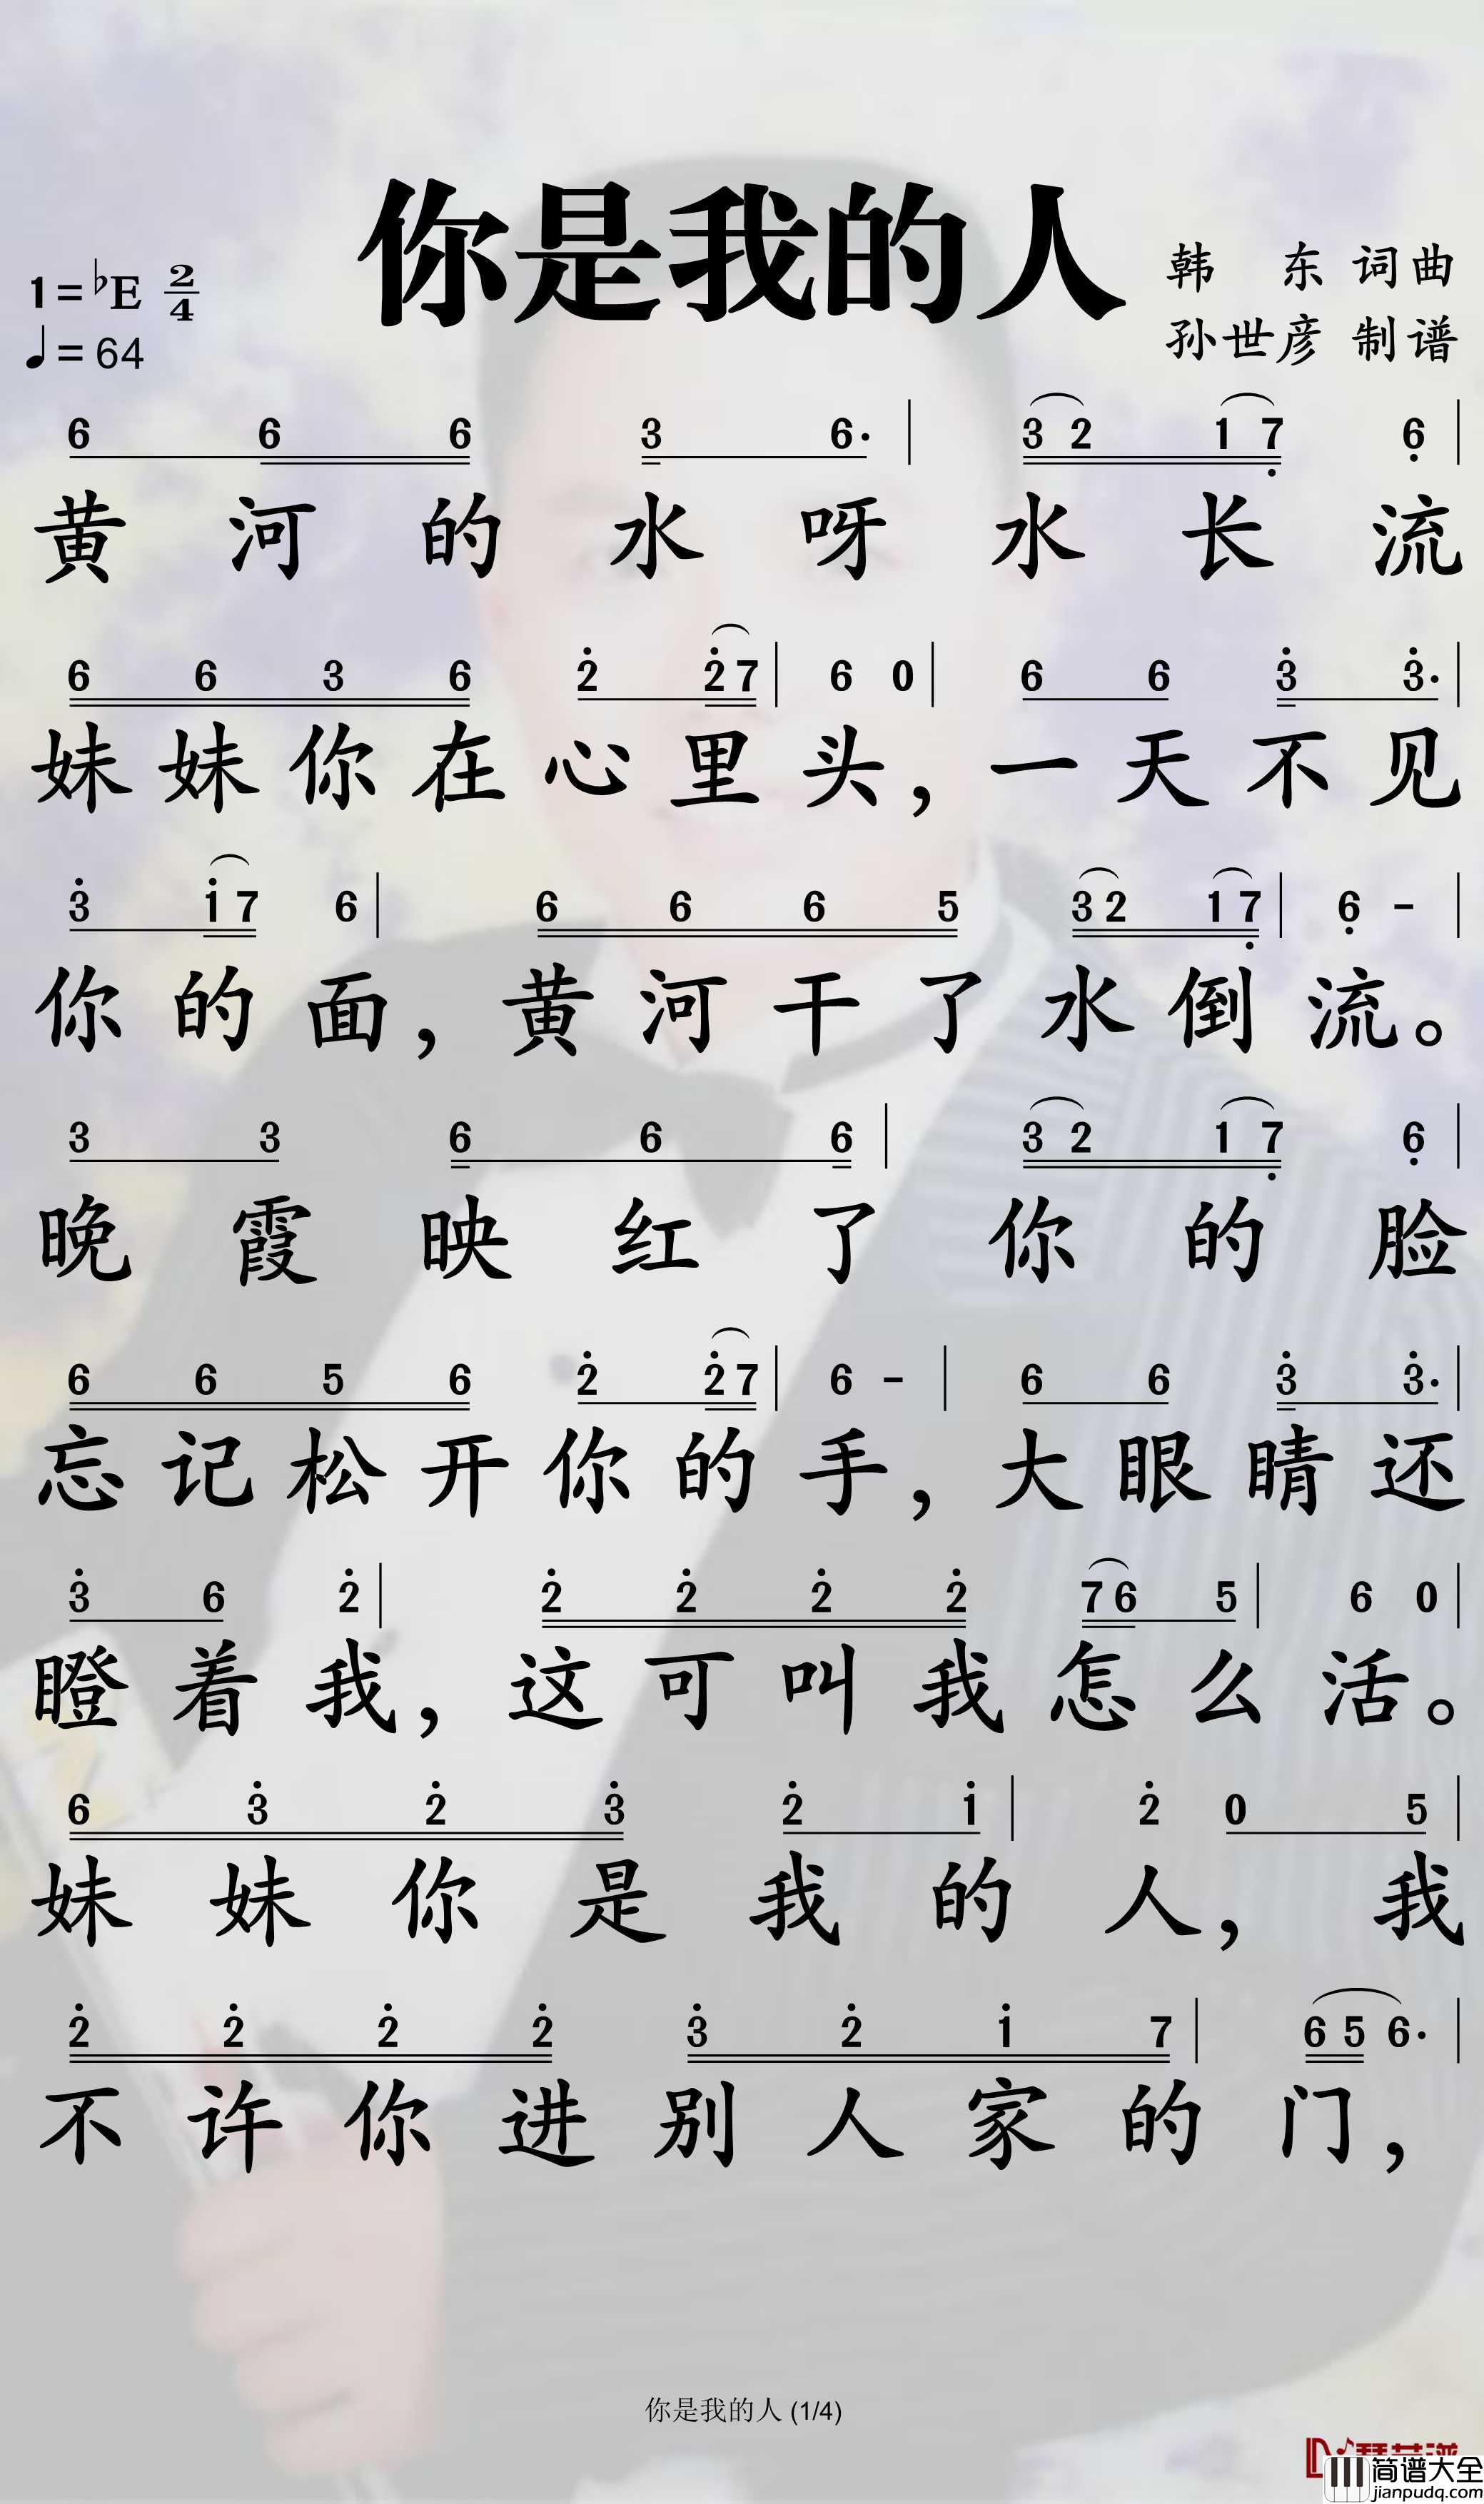 你是我的人
1=♭E 2/4
♩=64
韩 东 词曲
孙世彦 制谱
6 6 6 3 6· | 3 2 1 7̣ 6̣ |
黄河的水呀水长流
6 6 3 6 2̇ 2̇ 7 | 6 0 | 6 6 3̇ 3̇· |
妹妹你在心里头，一天不见
3̇ 1̇ 7 6 | 6 6 6 5 3 2 1 7̣ | 6̣ - |
你的面，黄河干了水倒流。
3 3 6 6 6 | 3 2 1 7̣ 6̣ |
晚霞映红了你的脸
6 6 5 6 2̇ 2̇ 7 | 6 - | 6 6 3̇ 3̇· |
忘记松开你的手，大眼睛还
3̇ 6 2̇ | 2̇ 2̇ 2̇ 2̇ 7 6 5 | 6 0 |
瞪着我，这可叫我怎么活。
6 3̇ 2̇ 3̇ 2̇ 1̇ | 2̇ 0 5 |
妹妹你是我的人，我
2̇ 2̇ 2̇ 2̇ 3̇ 2̇ 1̇ 7 | 6 5 6· |
不许你进别人家的门，
你是我的人 (1/4)
简谱大全
jianpudq.com